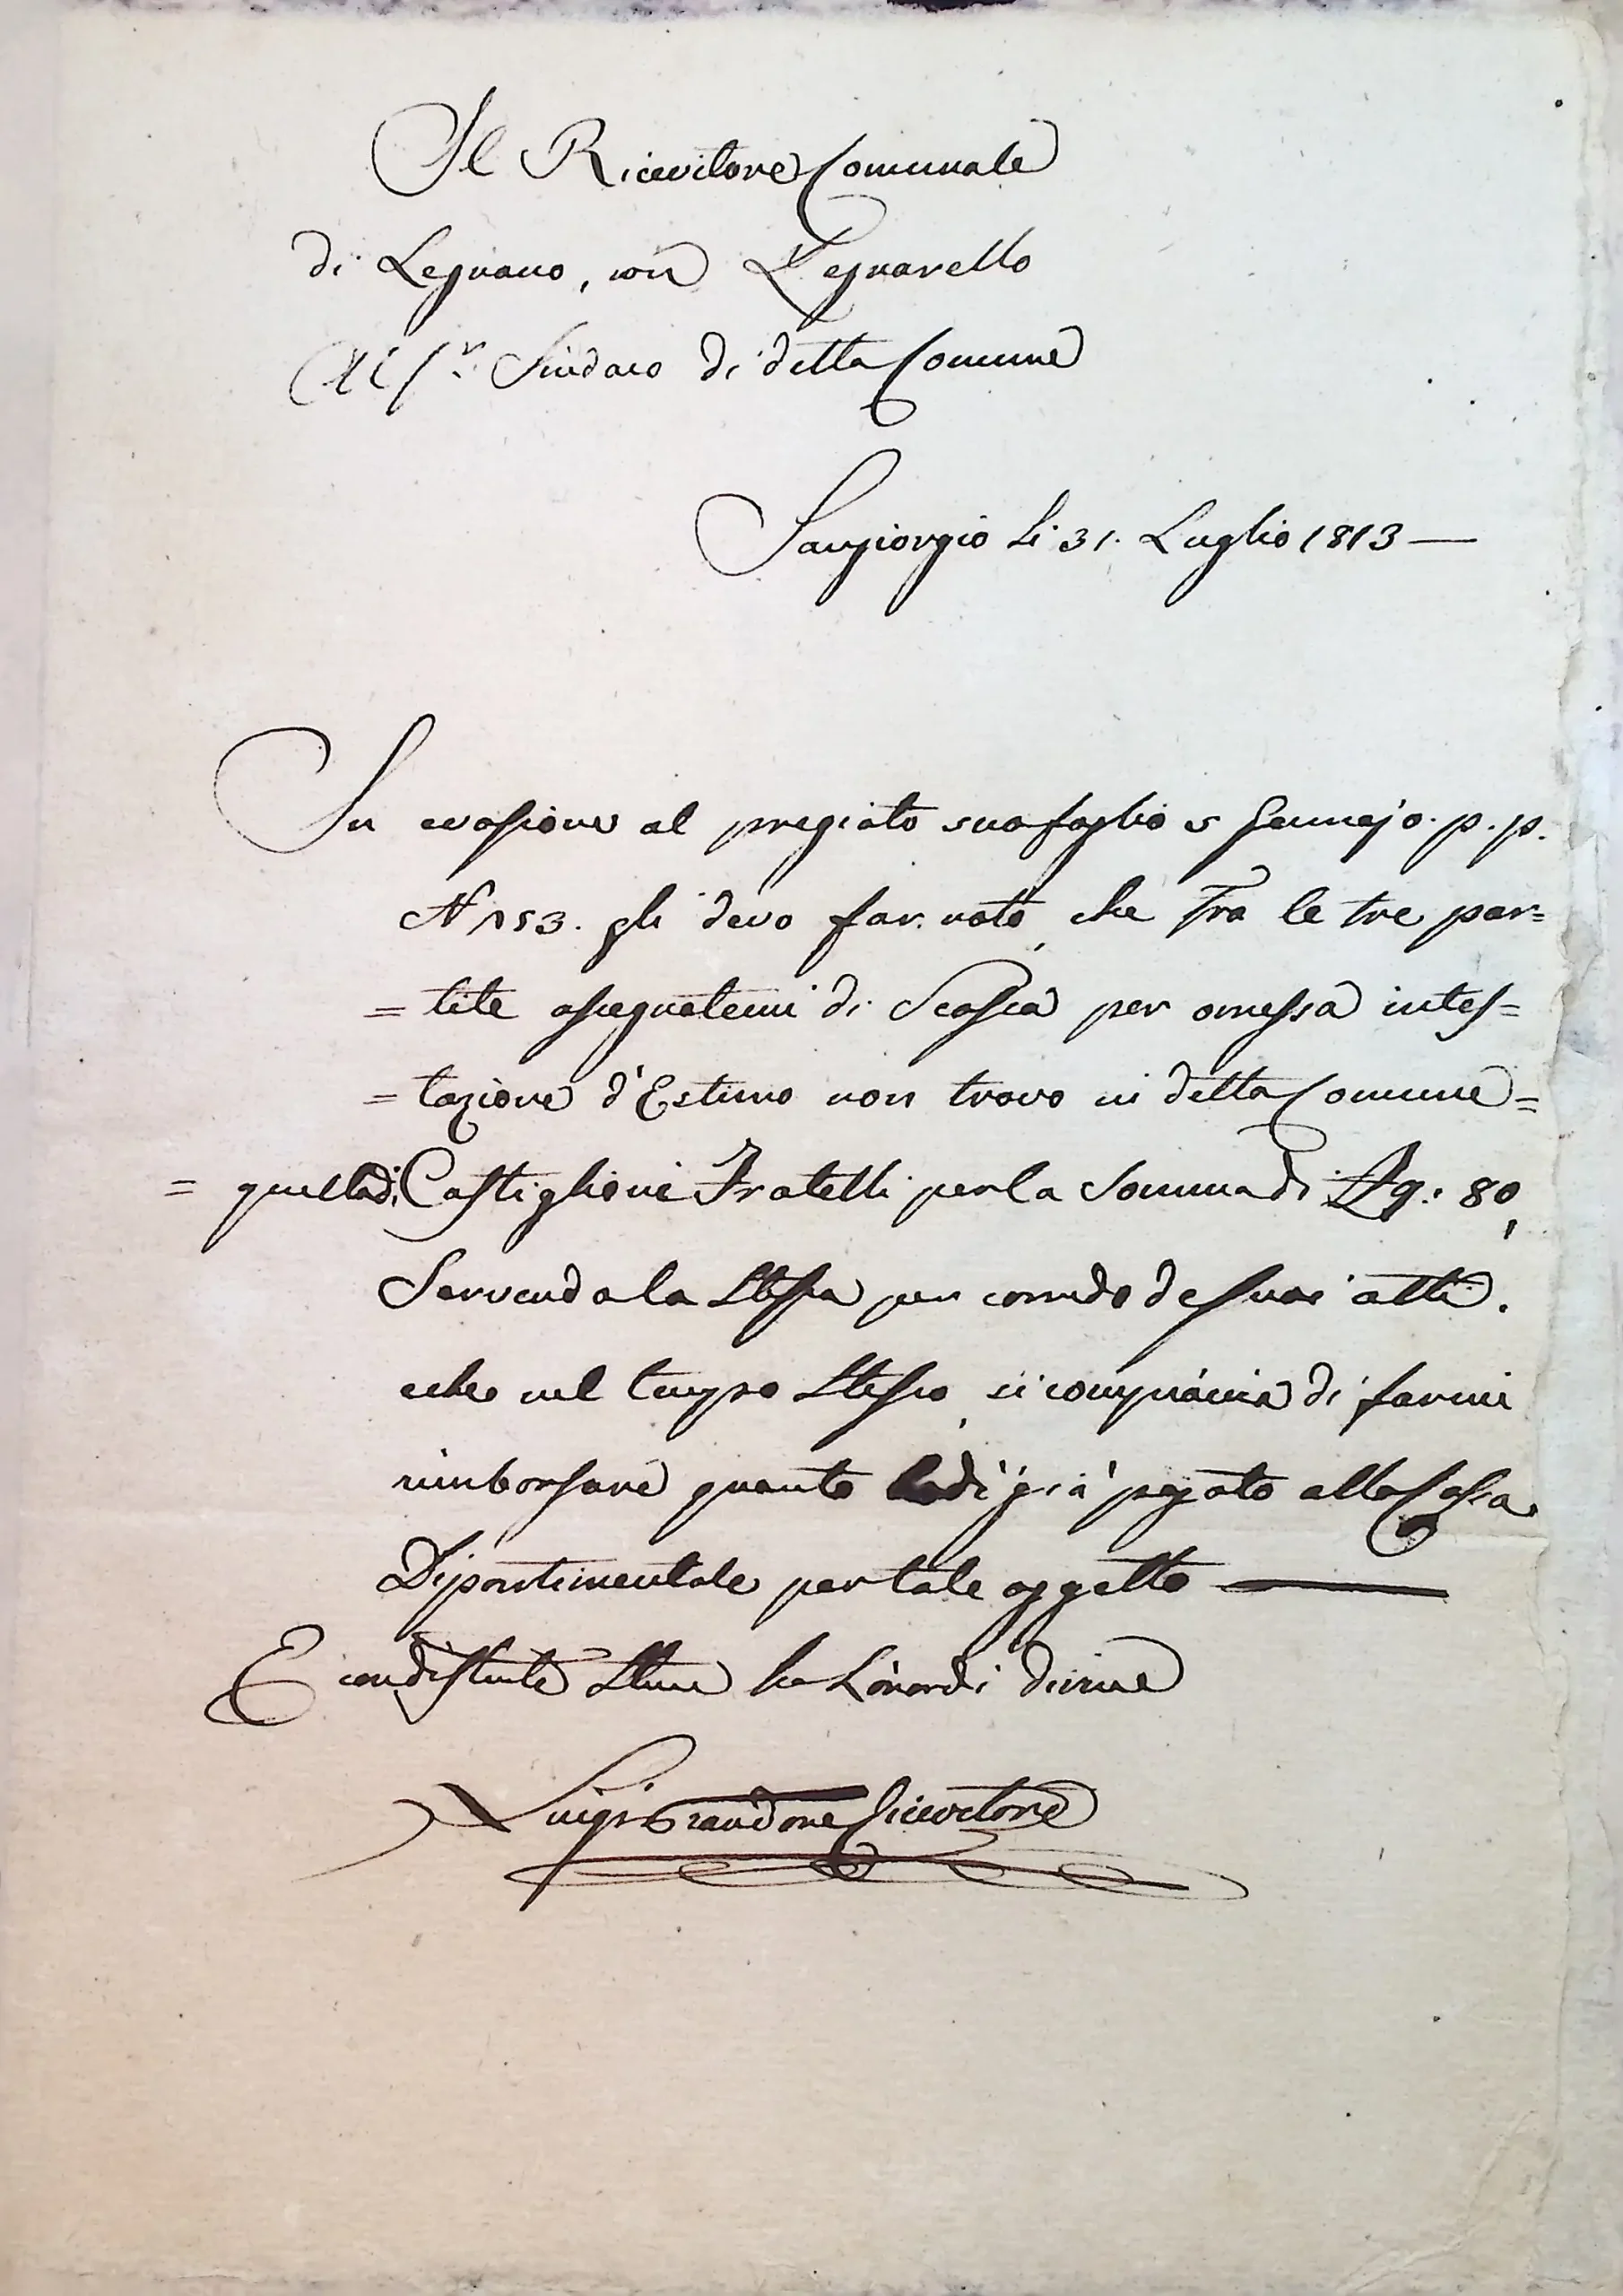 Il Ricevitore Comunale
di Legnano, con Legnarello
Al Sr. Sindaco di detta Comune
Sangiorgio li 31. Luglio 1813 —
In evasione al pregiato suo foglio 5 Gennajo. p. p.
N 153. gli devo far noto, che Tra le tre par=
= tite assegnatemi di Scossa per omessa intes=
= tazione d'Estimo non trovo in detta Comune =
= quella di Castiglioni Fratelli per la Somma di 80,
Servendo la Stessa per comodo de suoi atti.
e che nel tempo Stesso, si compiacia di farmi
rimborsare quanto già pagato alla Cassa
Dipartimentale per tale oggetto —
E con distinta Stima ho L'onor di dirmi
Luigi Grandone Ricevitore